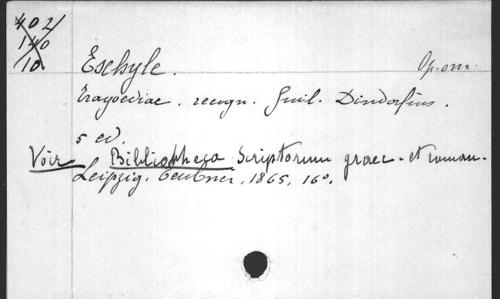 402/
140
10
Eschyle. Op. om.
Tragoediae. recogn. Guil. Dindorfius.
5 ed.
Voir Bibliotheca Scriptorum graec. et roman.
Leipzig. Teubner, 1865, 16°.